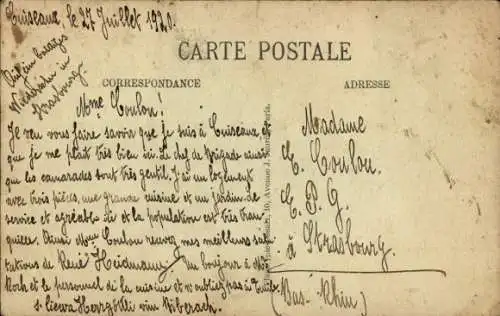 Cuiseaux, le 27 Juillet 1920.
CARTE POSTALE
CORRESPONDANCE
ADRESSE
Mme Coulou!
Je veu vous faire savoir que je suis à Cuiseaux et
que je me plait très bien ici. Le chef de Brigade ainsi
que les camarades sont très gentil. J'ai un logement
avec trois pièces, une grande cuisine et un jardin. Le
service et agréable ici et la population est très tran-
quille. Ainsi Mme Coulou recevez mes meilleurs salu-
tations de René Heidmann. Un bonjour à
Koch et le personnel de la cuisine et n'oubliez pas à
s. liewa Herrgöttli vun Biberach.
Madame
C. Coulou.
C. P. G.
à Strasbourg.
(Bas-Rhin)
Strasbourg.